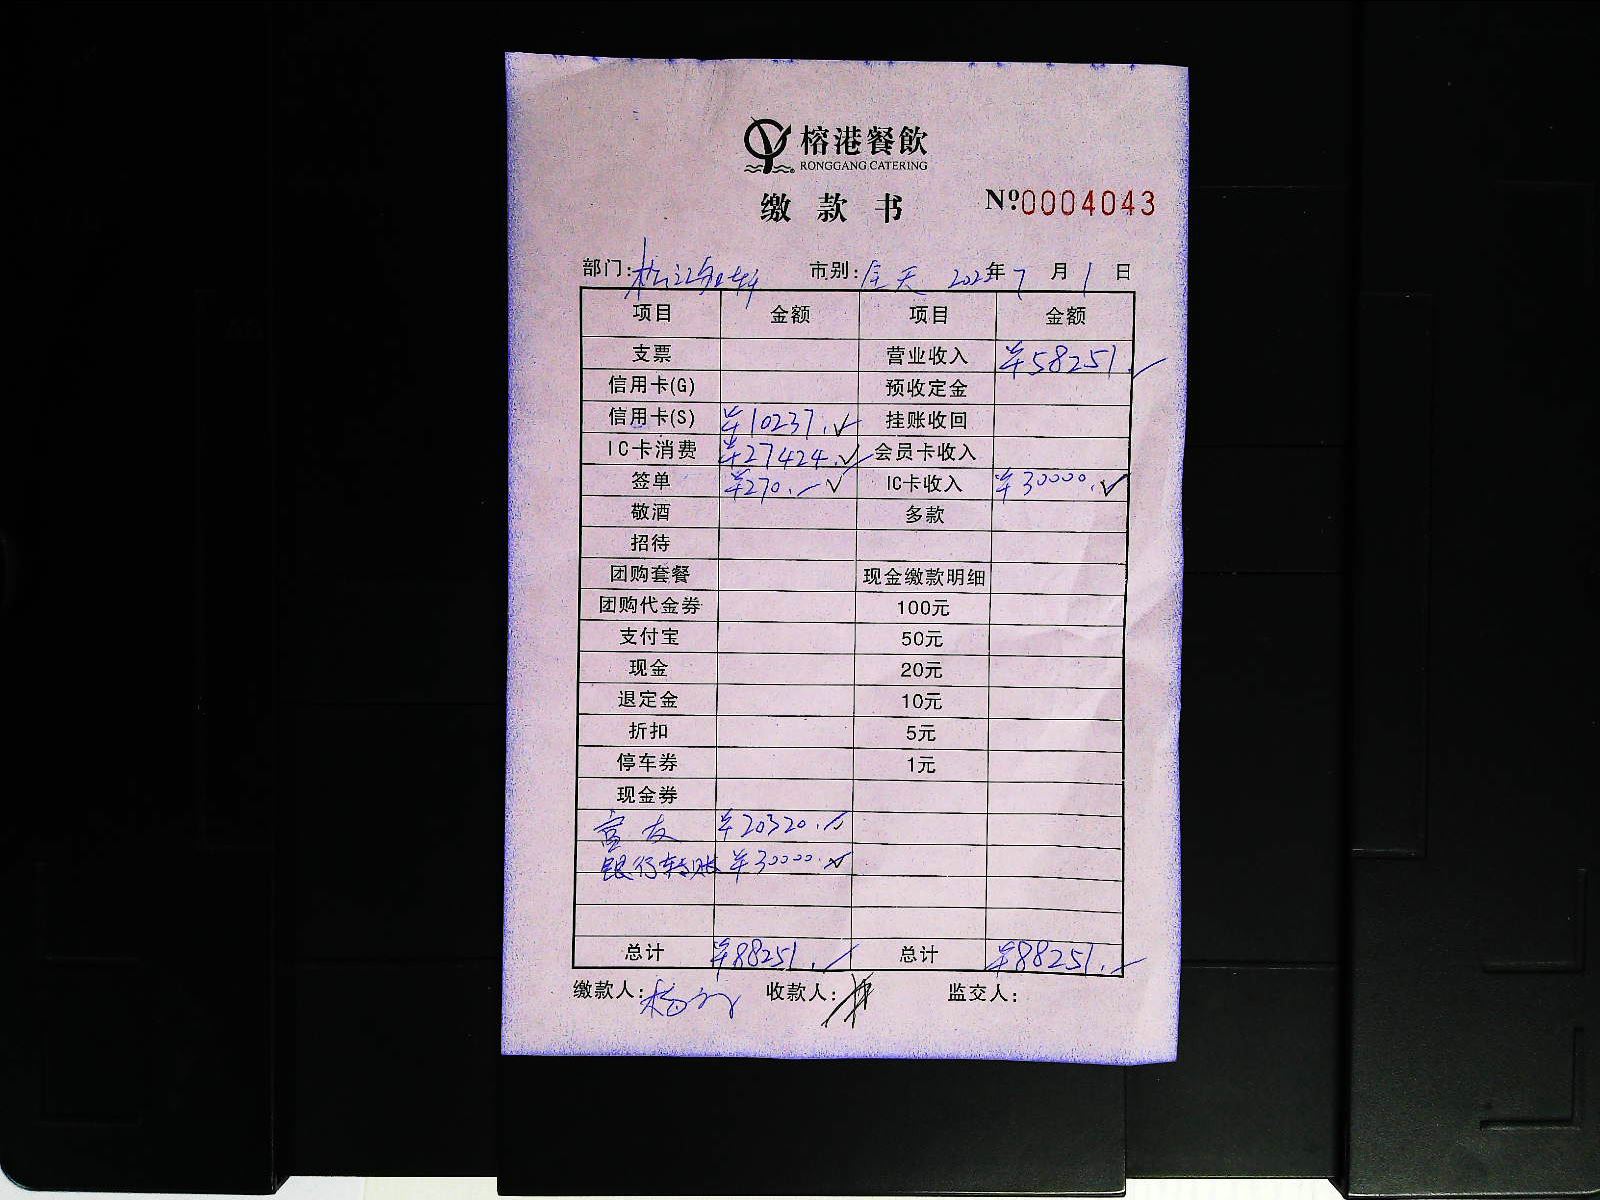 榕港餐飲
RONGGANG CATERING
缴款书 №0004043
部门: 市别:全天 2023年7月1日
项目 金额 项目 金额
支票 营业收入 ¥58251.
信用卡(G) 预收定金
信用卡(S) ¥10237. 挂账收回
IC卡消费 ¥27424. 会员卡收入
签单 ¥270. IC卡收入 ¥30000.
敬酒 多款
招待
团购套餐 现金缴款明细
团购代金券 100元
支付宝 50元
现金 20元
退定金 10元
折扣 5元
停车券 1元
现金券
富友 ¥20320.
银行转账 ¥30000.
总计 ¥88251. 总计 ¥88251.
缴款人: 收款人: 监交人: